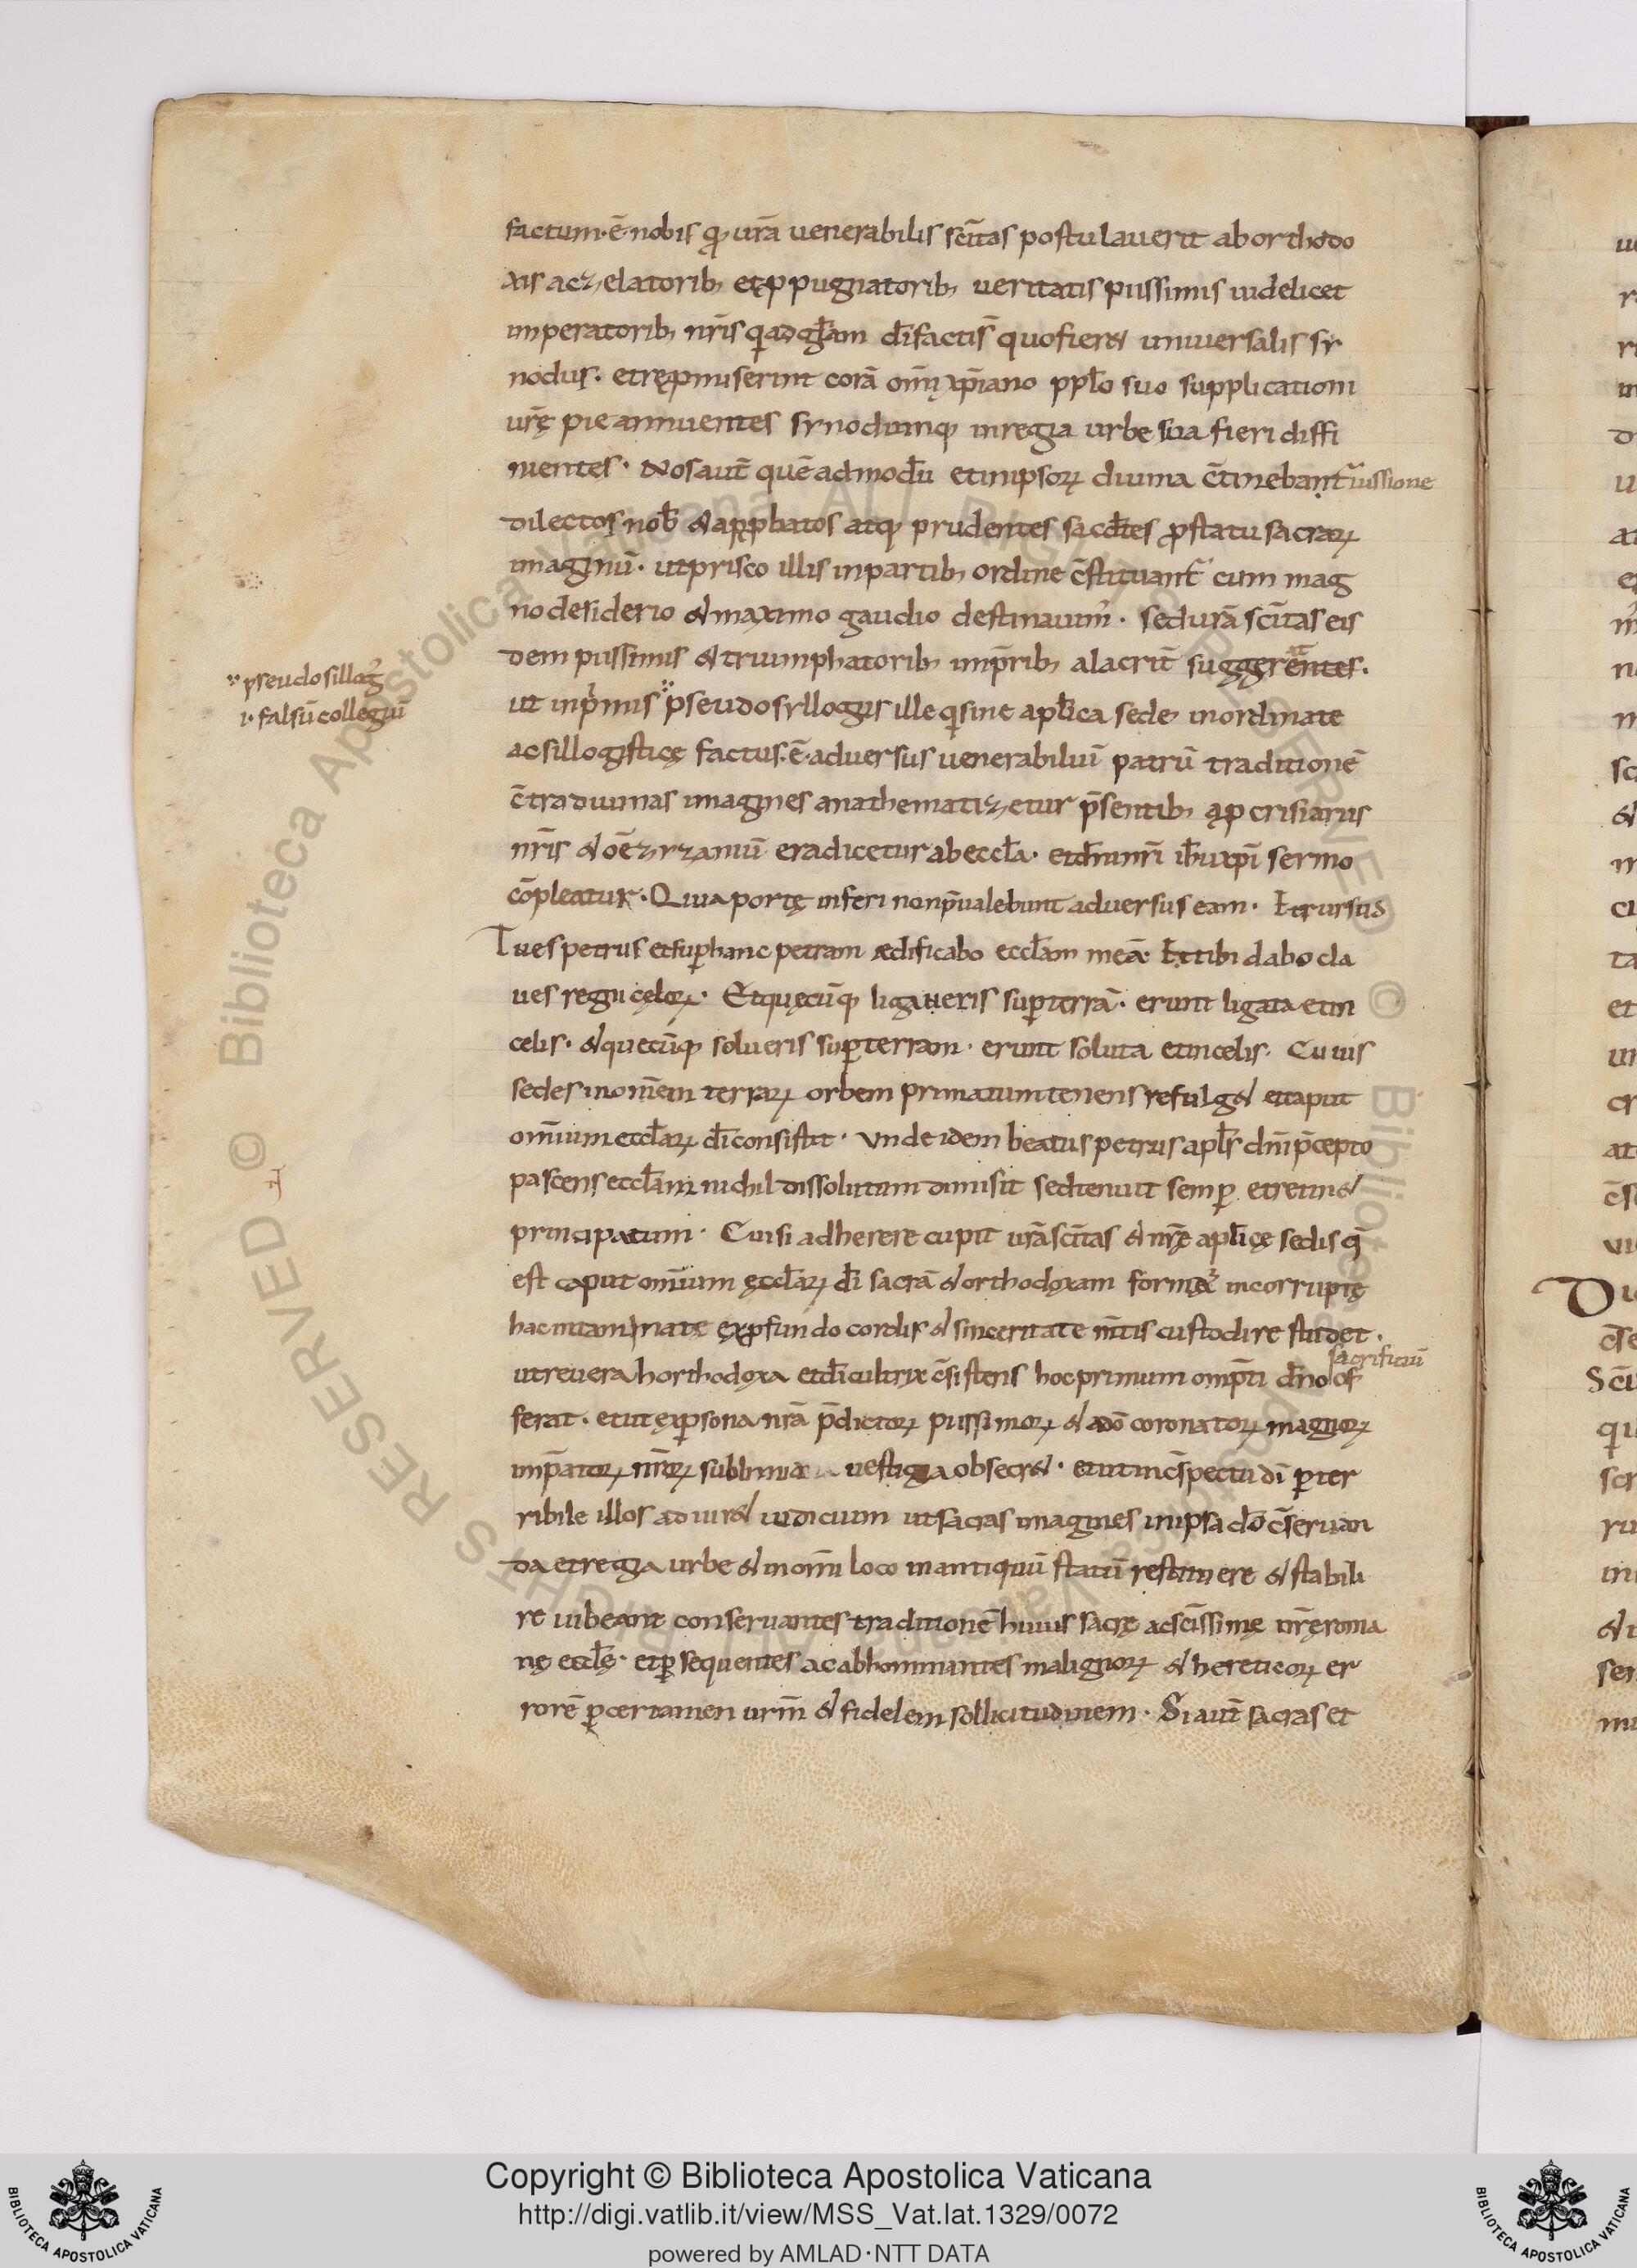 factum·ē·nobis qꝫ urā uenerabilis sc̄itas postulauerit ab orthodo
xis ac zelatoribꝫ et ꝓpugnatoribꝫ ueritatis piissimis uidelicet
imperatoribꝫ nr̄is qi ad gl̄am dī factis quo fieret uniuersalis sy
nodus· et repromiserint corā om̄i xp̄iano ppl̄o suo supplicationi
urę̄ pie annuentes synodumqꝫ in regia urbe sua fieri diffi
nientes· Nos aut̄ quē admodū et in ipsoꝝ diuina c̄tinebant᷑ iussione
dilectos nob̄ & apꝓbatos atqꝫ prudentes sacd̄tes ꝓ statu sacraꝝ
imaginū· ut prisco illis in partibꝫ ordine c̄stituant᷑ cum mag
no desiderio & maximo gaudio destinauim᷒· sed urā sc̄itas eis
dem piissimis & triumphatoribꝫ imp̄ribꝫ alacrit̄ suggerentes·
ut inprimis pseudosyllogus ille qi sine apl̄ica sede inordinate
ac sillogisticę factus·ē·aduersus uenerabiliū patrū traditionē
c̄tra diuinas imagines anathematizetur p̄sentibꝫ apocrisiariis
nr̄is & oē zyzaniū eradicetur ab eccl̄a· et dn̄i nr̄i ih̄u xp̄i sermo
cōpleatur· Quia portę inferi non p̄ualebunt aduersus eam· Et rursus
Tu es petrus et suꝑ hanc petram ædificabo eccl̄am meā· Et tibi dabo cla
ues regni cęloꝝ· Et quęcūqꝫ ligaueris suꝑ terrā· erunt ligata et in
celis· & quecūqꝫ solueris suꝑ terram· erunt soluta et in celis· Cuius
sedes in om̄em terraꝝ orbem primatum tenens refulget & caput
omīum eccl̄aꝝ dī consistit· Vnde idem beatus petrus apl̄s dn̄i p̄cepto
pascens eccl̄am nichil dissolutum dimisit sed tenuit semꝑ et retinet
principatum· Cui si adherere cupit urā sc̄itas & nrę̄ apl̄icę sedis q̄
est caput omīum ęccl̄aꝝ dī sacrā & orthodoxam formā incorruptę
hac immaculate ex ꝓfundo cordis & sinceritate m̄tis custodire studet·
ut reuera horthodoxa et dī cultrix c̄sistens hoc primum omp̄ti dn̄o sacrificiū of
ferat· et ut ex ꝑsona nr̄a p̄dictoꝝ piissimoꝝ & a dō coronatoꝝ magnoꝝ
imp̄atoꝝ nr̄oꝝ uestigia obsecret· et ut in c̄spectu dī ꝑ ter
ribile illos adiuret iudicium ut sacras imagines in ipsa dō c̄seruan
da et regia urbe & in om̄i loco in antiquū statū restituere & stabili
re iubeant conseruantes traditionē huius sacrę ac sc̄issimę nr̄ę roma
nę eccl̄ę· et ꝑsequentes ac abhominantes malignoꝝ & hereticoꝝ er
rorē ꝑ certamen ur̄m & fidelem sollicitudinem· Si aut̄ sacras et
pseudosillog᷒
·i· falsū collegiū
Copyright © Biblioteca Apostolica Vaticana
http://digi.vatlib.it/view/MSS_Vat.lat.1329/0072
powered by AMLAD·NTT DATA
BIBLIOTECA APOSTOLICA VATICANA
BIBLIOTECA APOSTOLICA VATICANA